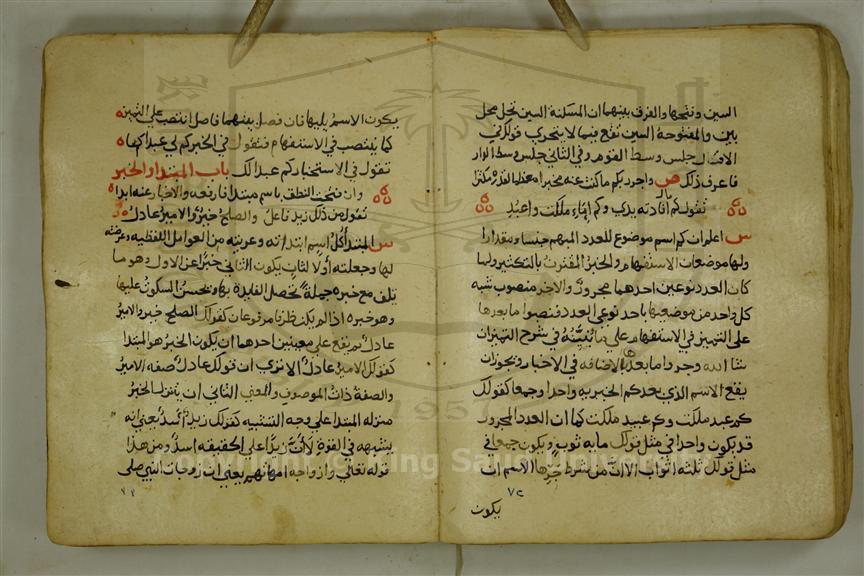 السين ونتحها والفرق بينهما ان المسكنة السين تحل محل
بين والمفتوحة السين تقع فيما لا يتجزي فقولك في
الاول جلس وسط القوم وفي الثاني جلس وسط الدار
فاعرف ذلك ص واجرر بكم ما كنت عنه مخبرا معظما لقدره مكثرا
تقول كم مال افادته يدي وكم اماء ملكت واعبد
س اعلم ان كم اسم موضوع للعدد المبهم جنسا ومقدارا
ولها موضعان الاستفهام والخبر المقترن بالتكثير ولما
كان العدد نوعين احدهما مجرور والاخر منصوب شبه
كل واحد من موضعيها باحد نوعي العدد فنصبوا ما بعدها
على التمييز في الاستفهام علي ما نبينه في شرح التمييز ان
شا الله وجروا ما بعدها بالاضافه في الاخبار ويجوز ان
يقع الاسم الذي بعد كم الخبريه واحدا وجمعا كقولك
كم عبد ملكت وكم عبيد ملكت كما ان العدد المجرور
قد يكون واحدا في مثل قولك مايه ثوب ويكون جمعا في
مثل قولك ثلثه اثواب الا ان من شرط جرها الاسم ان
يكون
٧٢
يكون الاسم يليها فان فصل بينهما فاصل انتصب علي التمييز
كما ينتصب في الاستفهام فتقول في الخبر كم لي عبدا كما
تقول في الاستخبار كم عبدا لك باب المبتدا والخبر
وان فتحت النطق باسم مبتدا فارفعه والاخبار عنه ابدا
تقول من ذلك زيد عاقل والصلح خير والامير عادل
س المبتدا كل اسم ابتداته وعريته من العوامل اللفظيه وعرضته
لها وجعلته اولا لثان يكون الثاني خبرا عن الاول وهو ما
يلف مع خبره جملة تحصل الفايدة بها ويحسن السكوت عليها
وهو خبره اذا لم يكن ظرفا مرفوعان كقولك الصلح خير والامير
عادل ثم يقع علي معنيين احدهما ان يكون الخبر هو المبتدا
كقولك الامير عادل الا تري ان قولك عادل صفه الامير
والصفة ذات الموصوف والمعني الثاني ان يتنزل الخبر
منزله المبتدا علي وجه التشبيه كقولك زيد اسد يعني انه
يشبهه في القوة لا ان زيدا علي الحقيقه اسد ومن هذا
قوله تعالي وازواجه امهاتهم يعني ان زوجات النبي صلي